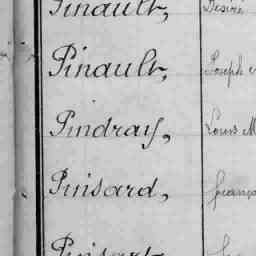 Pinault, Désiré
Pinault, Joseph
Pindray, Louis M
Puisard, Franço